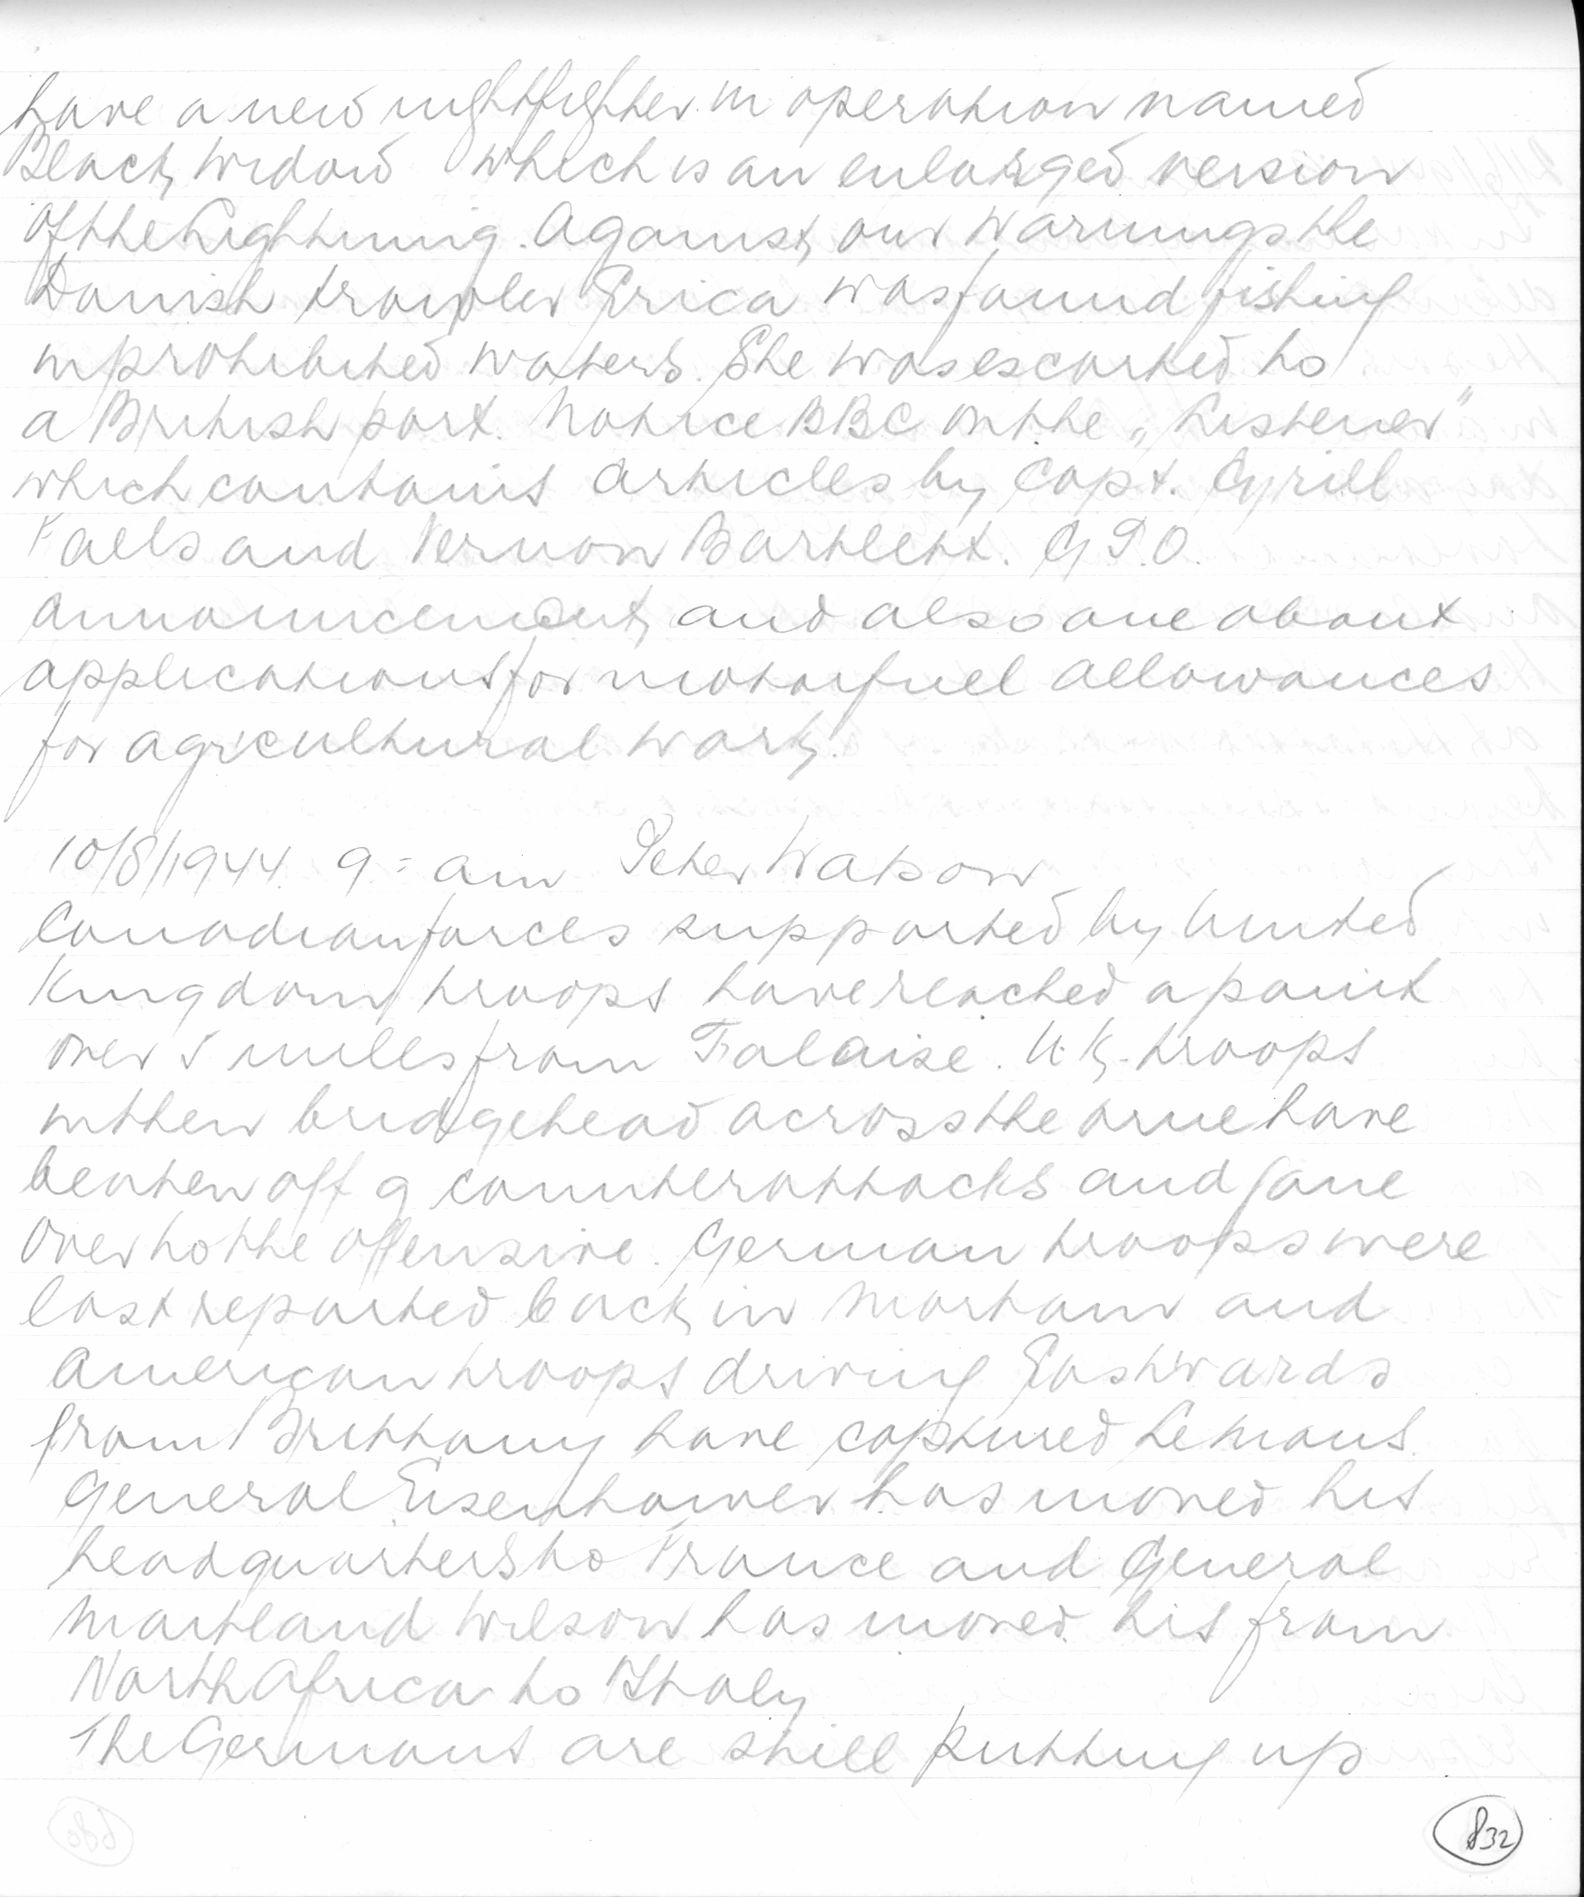 have a new nightfighter in operation named
Black Widow which is an enlarged version
of the Lightning. Against our warnings the
Danish trawler Erica was found fishing
in prohibited waters. She was escorted to
a British port. Notice BBC on the „Listener"
which contains articles by Capt. Cyrill
Falls and Vernon Bartlett. G.P.O.
announcement and also one about
applications for motorfuel allowances
for agricultural work.
10/8/1944. 9 = am Peter Watson
Canadian forces supported by United
Kingdom troops have reached a point
over 5 miles from Falaise. U.K. troops
in their bridgehead across the Orne have
beaten off 9 counterattacks and gone
over to the offensive. German troops were
last reported back in Mortain and
American troops driving Eastwards
from Brittany have captured Le Mans.
General Eisenhower has moved his
headquarters to France and General
Maitland Wilson has moved his from
North Africa to Italy
The Germans are still putting up
832